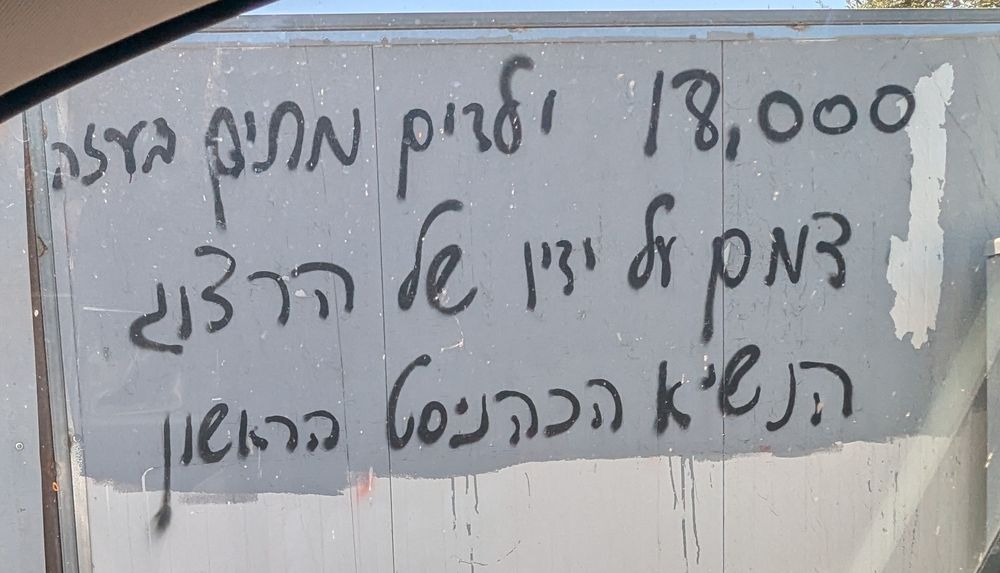 18,000 ילדים מתים בעזה
דמם על ידיו של הרצוג
הנשיא הכהניסט הראשון